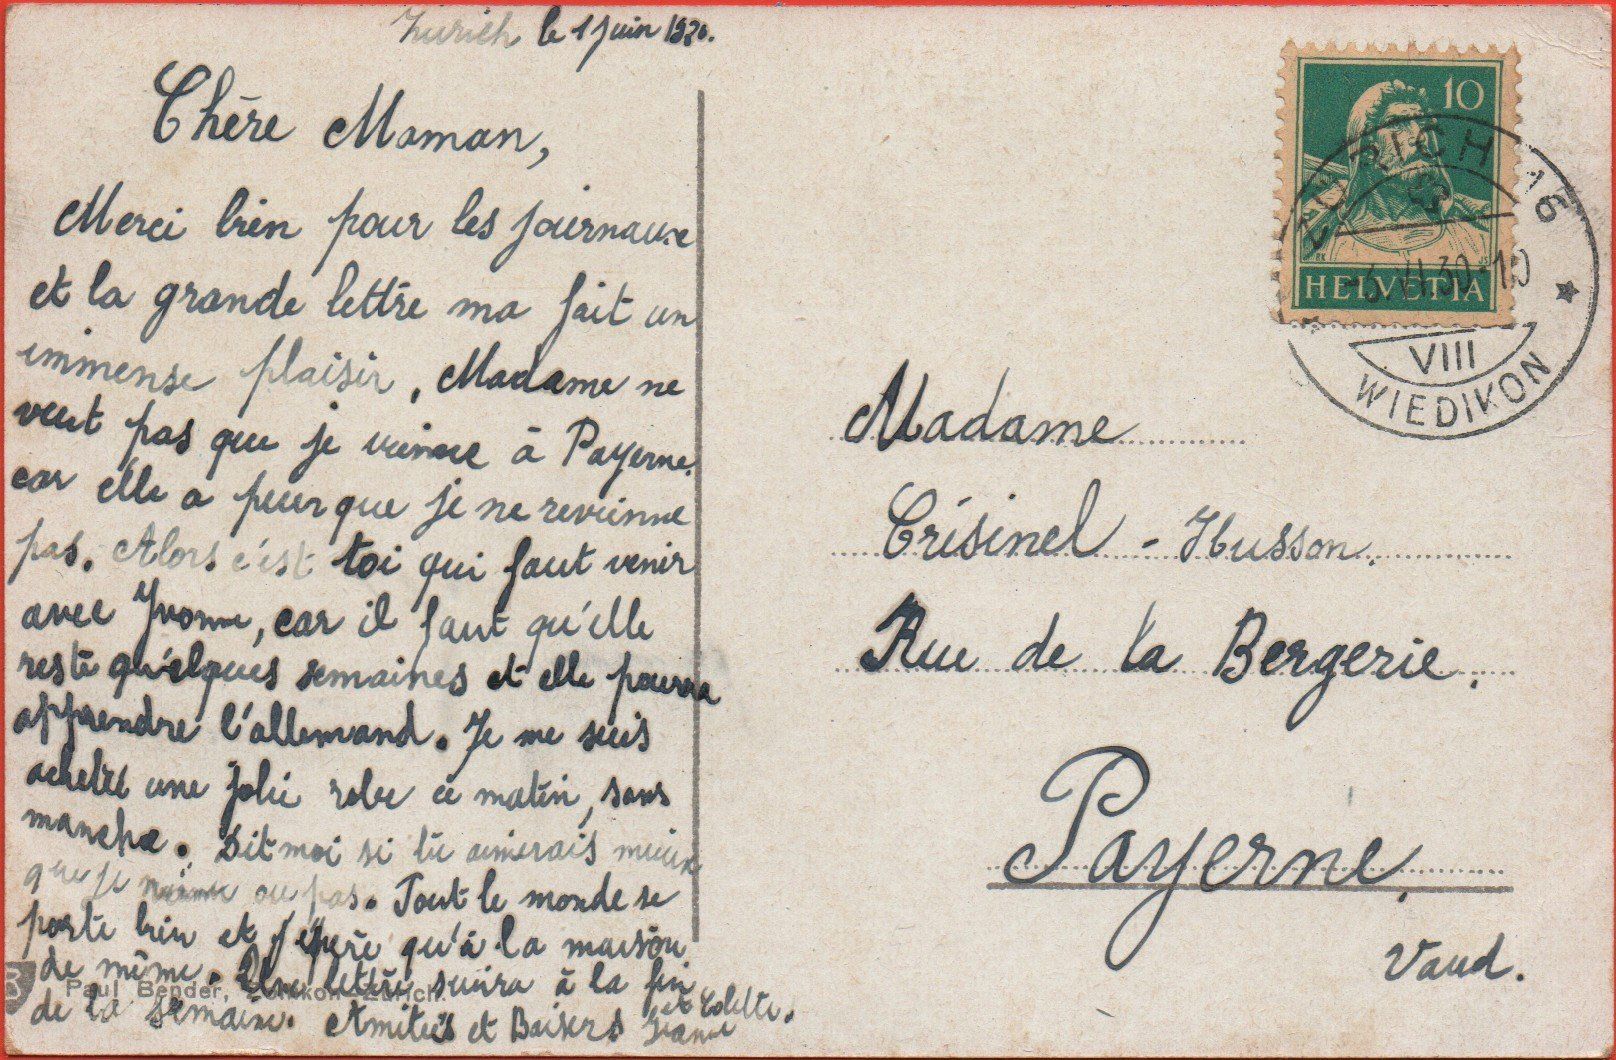 Zurich le 1 juin 1930.
Chère Maman,
Merci bien pour les journaux
et la grande lettre ma fait un
immense plaisir, Madame ne
veut pas que je vienne à Payerne.
car elle a peur que je ne revienne
pas. Alors c'est toi qui faut venir
avec Yvonne, car il faut qu'elle
reste quelques semaines et elle pourra
apprendre l'allemand. Je me suis
acheté une jolie robe ce matin, sans
manche. Dit moi si tu aimerais mieux
que je vienne ou pas. Tout le monde se
porte bien et j'éspère qu'à la maison
de même. Une lettre suivra à la fin
de la semaine. Amitiés et Baisers Jeanne
et Colette.
Paul Bender, Zollikon-Zürich.
10
HELVETIA
ZÜRICH 16
-3.VI.30.-10
VIII
WIEDIKON
Madame
Crisinel - Husson.
Rue de la Bergerie.
Payerne.
Vaud.